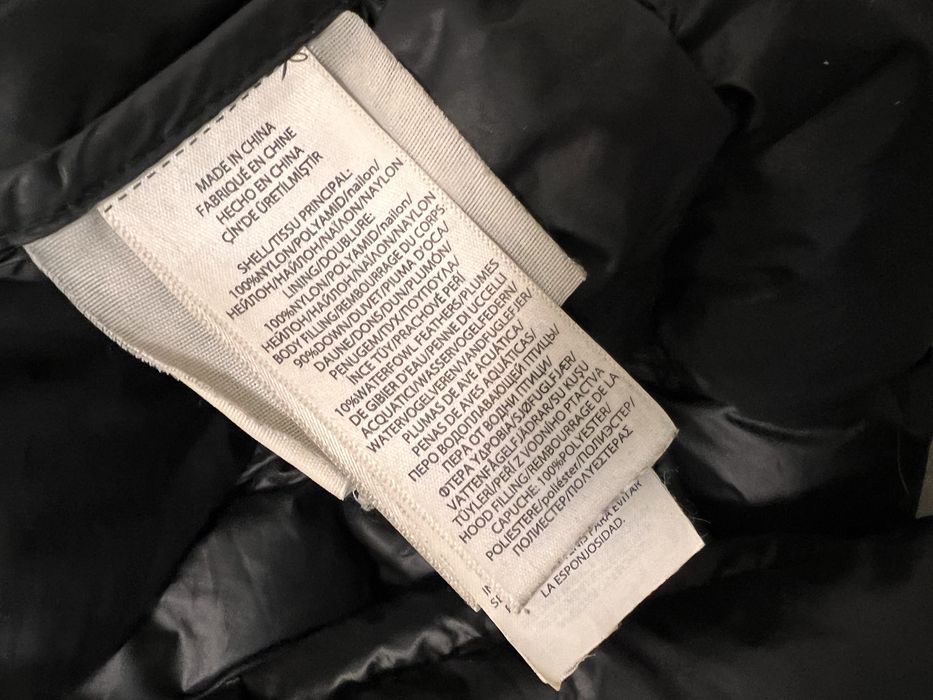 MADE IN CHINA
FABRIQUÉ EN CHINE
HECHO EN CHINA
ÇİN'DE ÜRETİLMİŞTİR
SHELL/TISU PRINCIPAL:
100%NYLON/POLYAMID/nailon/
НЕЙЛОН/НАЙЛОН/ΝΑΪΛΟΝ/NAYLON
LINING/DOUBLURE:
100%NYLON/POLYAMID/nailon/
НЕЙЛОН/НАЙЛОН/ΝΑΪΛΟΝ/NAYLON
BODY FILLING/REMBOURRAGE DU CORPS
90%DOWN/DUVET/PIUMA D'OCA/
DAUNE/DONS/DUN/PLUMÓN/
PENUGEM/ПУХ/ΠΟΥΠΟΥΛΑ/
İNCE TÜY/PRACHOVÉ PEŘÍ
10%WATERFOWL FEATHERS/PLUMES
DE GIBIER D'EAU/PENNE DI UCCELLI
ACQUATICI/WASSERVOGELFEDERN/
WATERVOGELVEREN/VANDFUGLEFJER/
PLUMAS DE AVE ACUÁTICA/
PENAS DE AVES AQUÁTICAS/
ПЕРО ВОДОПЛАВАЮЩЕЙ ПТИЦЫ/
ПЕРА ОТ ВОДНИ ПТИЦИ/
ΦΤΕΡΑ ΥΔΡΟΒΙΑ/SJØFUGLFJÆR/
VATTENFÅGELFJÄDRAR/SU KUŞU
TÜYLERİ/PEŘÍ Z VODNÍHO PTACTVA
HOOD FILLING/REMBOURRAGE DE LA
CAPUCHE: 100%POLYESTER/
POLIESTERE/poliéster/ПОЛИЭСТЕР/
ПОЛИЕСТЕР/ΠΟΛΥΕΣΤΕΡΑΣ
PARA EVITAR
LA ESPONJOSIDAD.